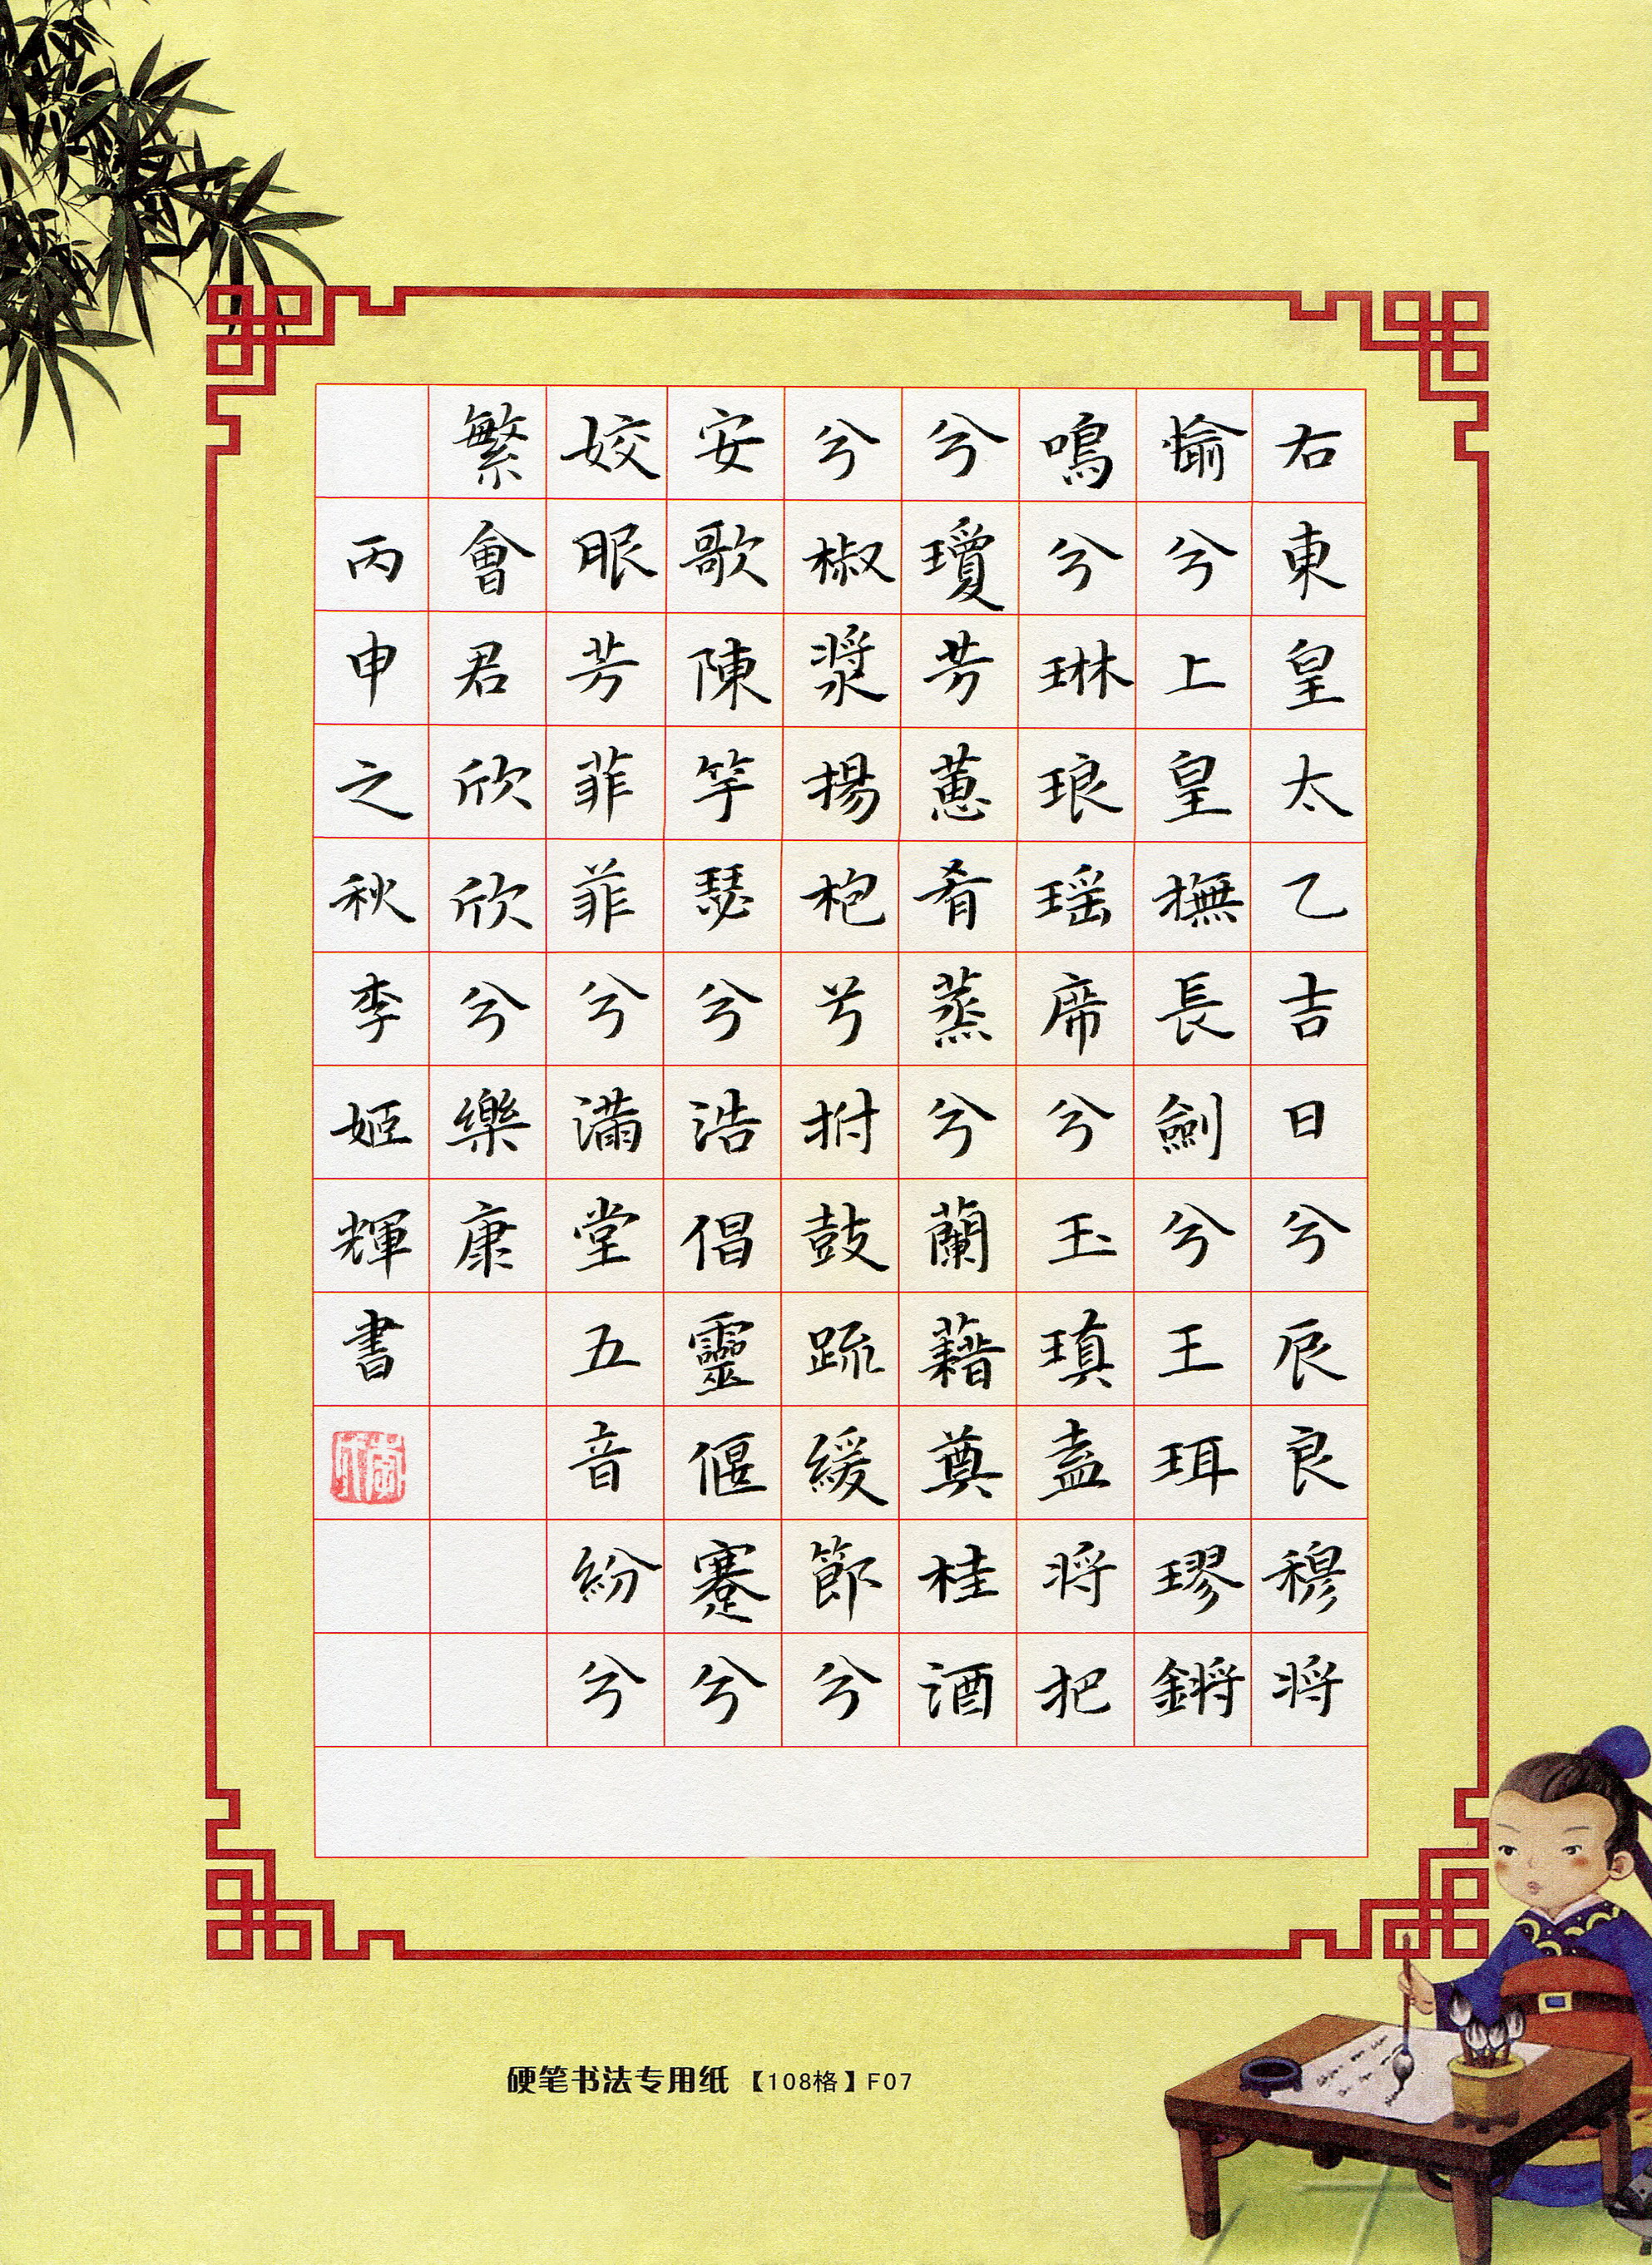 右東皇太乙吉日兮辰良穆将
愉兮上皇撫長劍兮王珥璆鏘
鳴兮琳琅瑶席兮玉瑱盍将把
兮瓊芳蕙肴蒸兮蘭藉奠桂酒
兮椒漿揚枹兮拊鼓疏緩節兮
安歌陳竽瑟兮浩倡靈偃蹇兮
姣眼芳菲菲兮滿堂五音紛兮
繁會君欣欣兮樂康
丙申之秋李姬輝書
硬笔书法专用纸【108格】F07